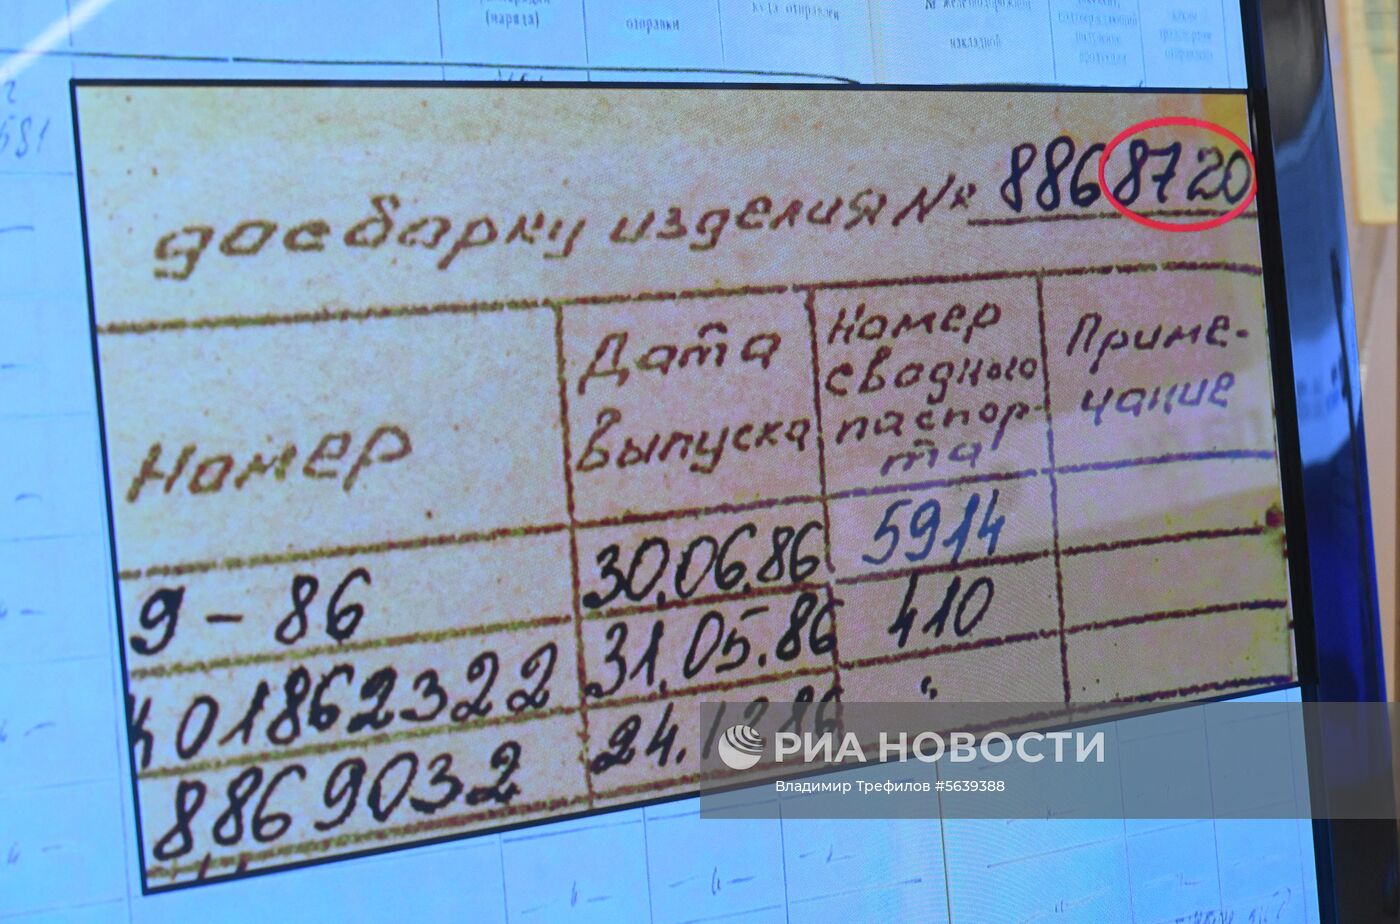 (наряда)
отправки
куда отправлен
№ железнодорожной
накладной
581
досборку изделия № 8868720
Номер
Дата
выпуска
Номер
сводного
паспор-
та
Приме-
чание
9-86
30.06.86
5914
И01862322
31.05.86
410
8869032
24.12.86
"
РИА НОВОСТИ
Владимир Трефилов ≤5639388